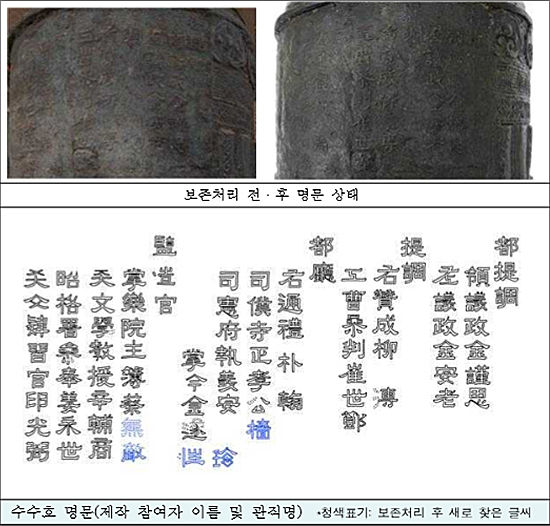 보존처리 전·후 명문 상태
都提調
領議政金謹思
左議政金安老
提調
右贊成柳溥
工曹參判崔世節
都廳
右通禮朴翰
司僕寺正李公檣
司憲府執義安玹
掌令金遂性
監造官
掌樂院主簿蔡無敵
天文學敎授辛輔商
昭格署參奉姜永世
天文肄習官印光弼
수수호 명문(제작 참여자 이름 및 관직명) *청색표기: 보존처리 후 새로 찾은 글씨